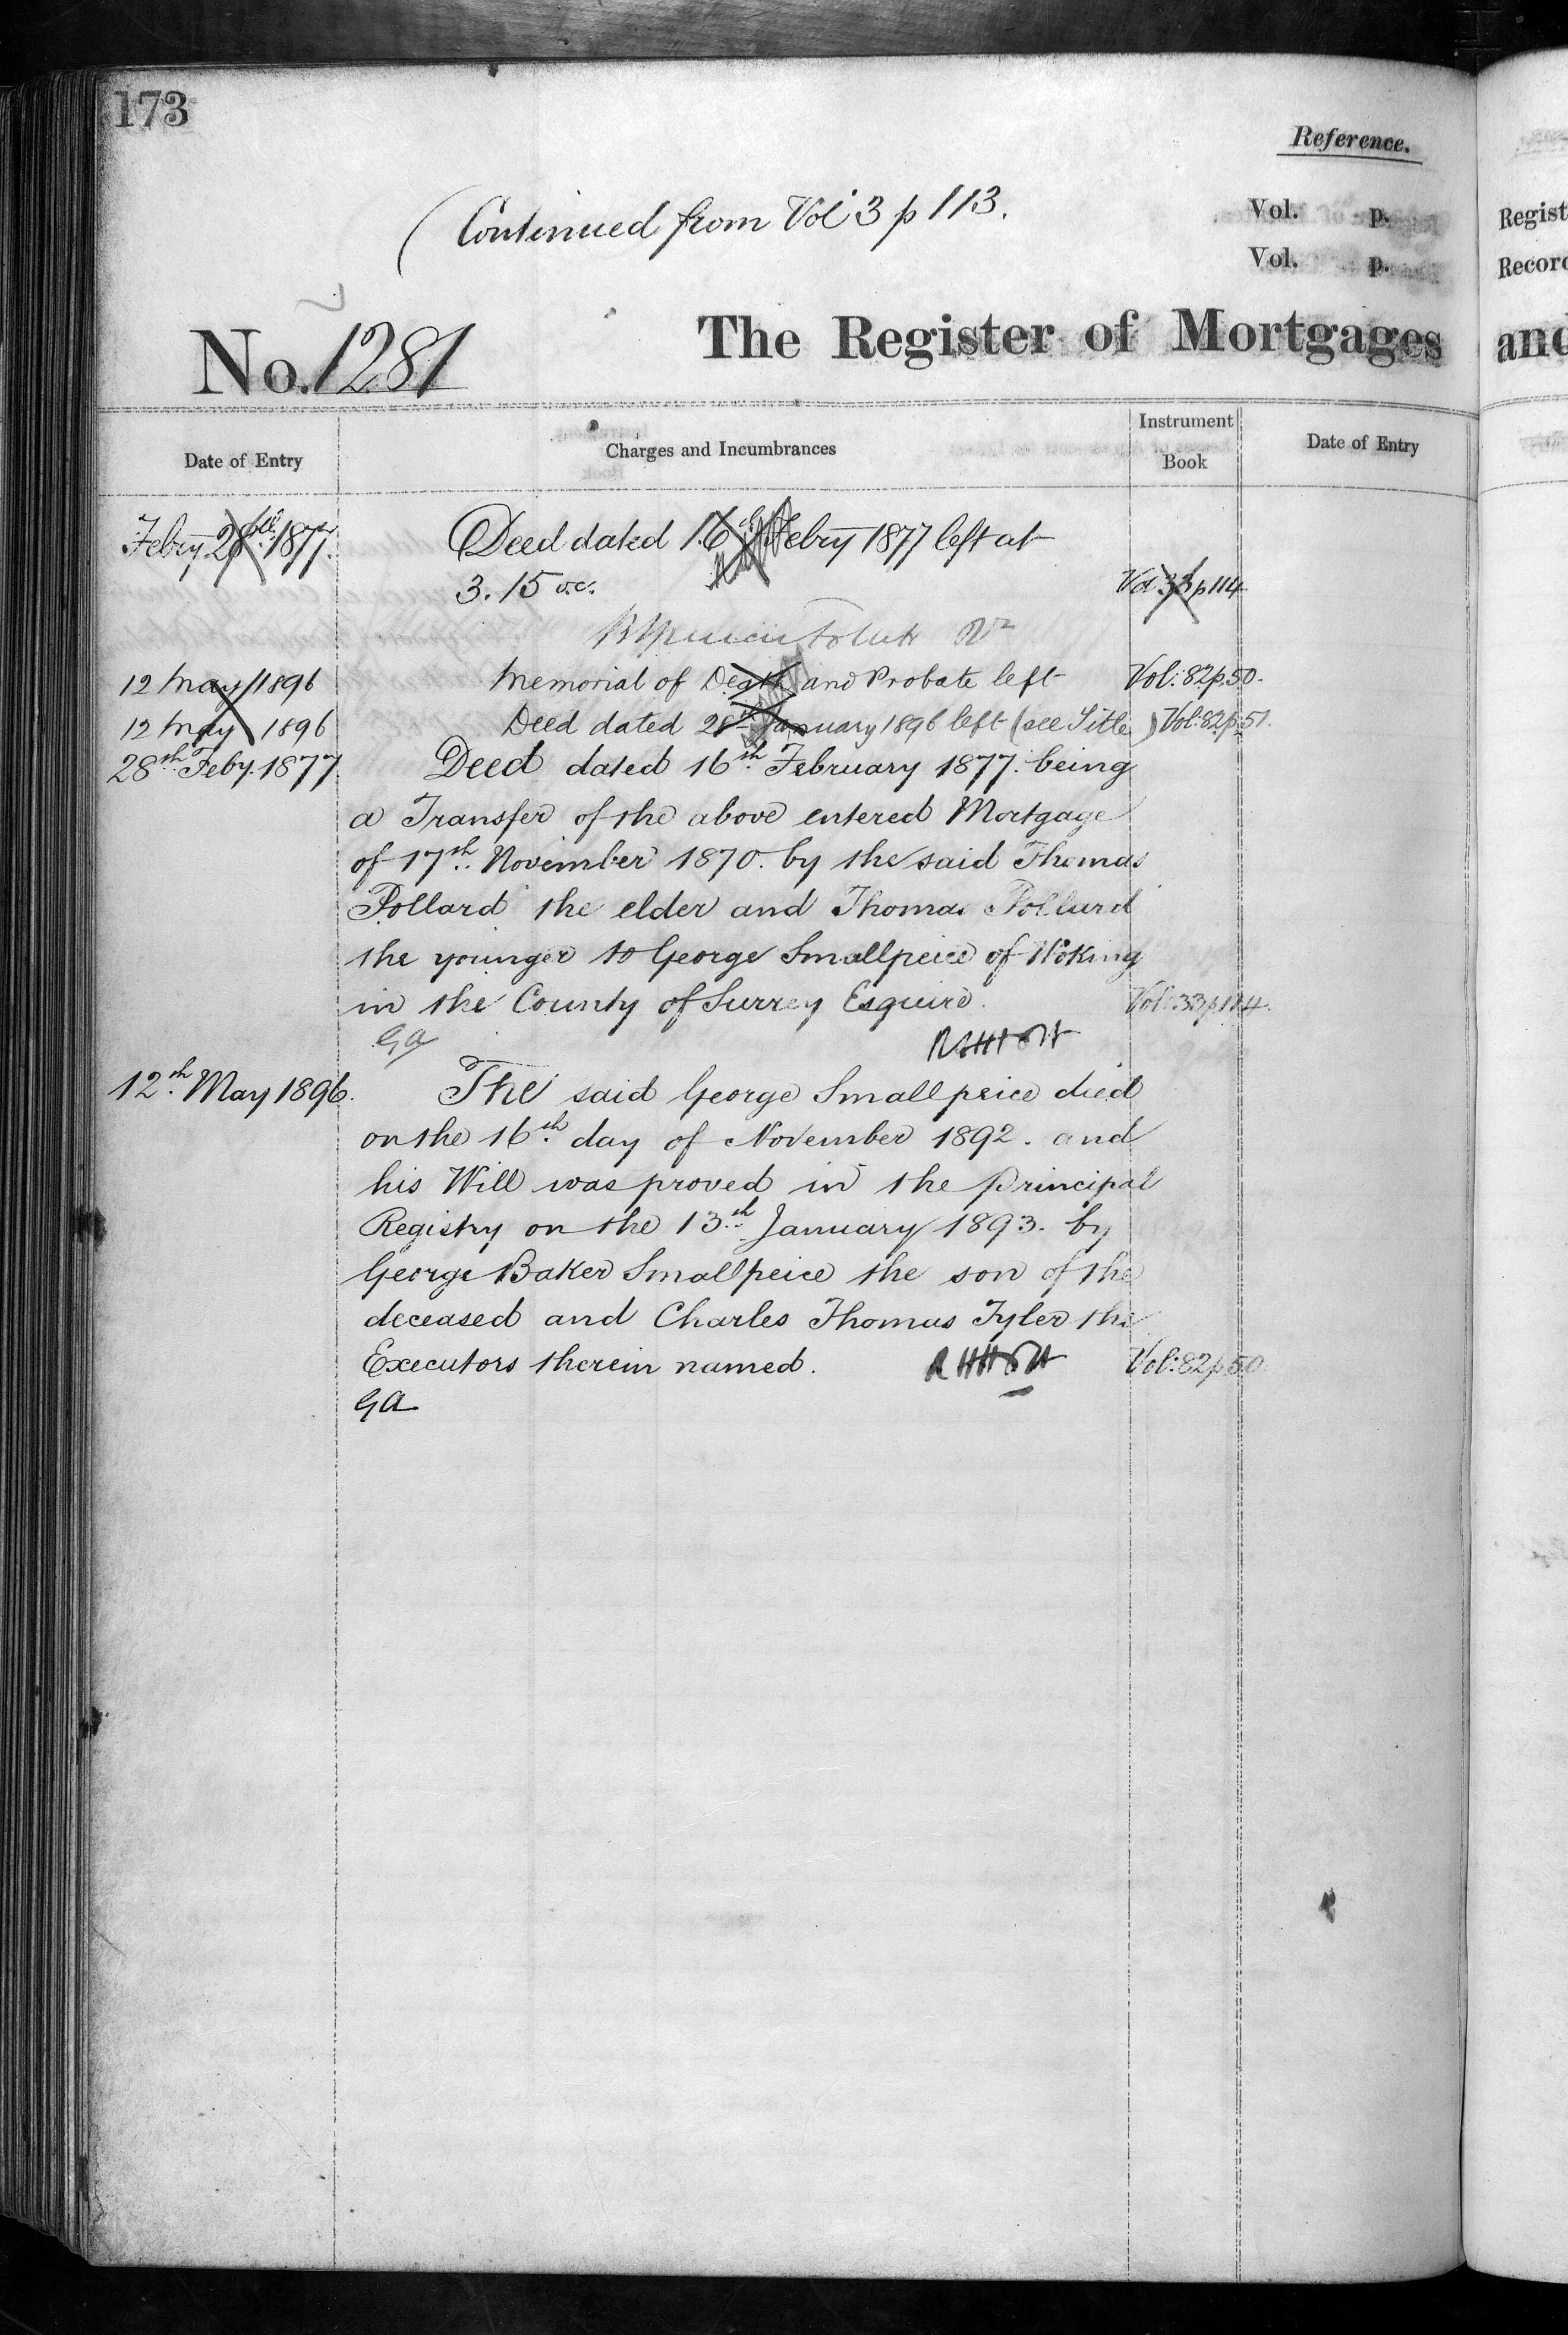 173
Reference.
(Continued from Vol 3 p 113.
Vol. p.
Vol. p.
Regist
Record
No. 1281
The Register of Mortgages
and
Date of Entry
Charges and Incumbrances
Instrument Book
Date of Entry
Febry 28th 1877. Deed dated 16th Febry 1877 left at
3. 15 o.c. Vol 33 p 114
12 May 1896 Memorial of Death and Probate left Vol: 82 p. 50.
12 May 1896 Deed dated 28th January 1896 left (see Title) Vol: 82 p. 51.
28th Feby. 1877 Deed dated 16th February 1877. being
a Transfer of the above entered Mortgage
of 17th November 1870. by the said Thomas
Pollard the elder and Thomas Pollard
the younger to George Smallpeice of Woking
in the County of Surrey Esquire. Vol: 33 p 114.
GA
12th May 1896. The said George Smallpeice died
on the 16th day of November 1892. and
his Will was proved in the Principal
Registry on the 13th January 1893. by
George Baker Smallpeice the son of the
deceased and Charles Thomas Tyler the
Executors therein named. Vol: 82 p 50.
GA